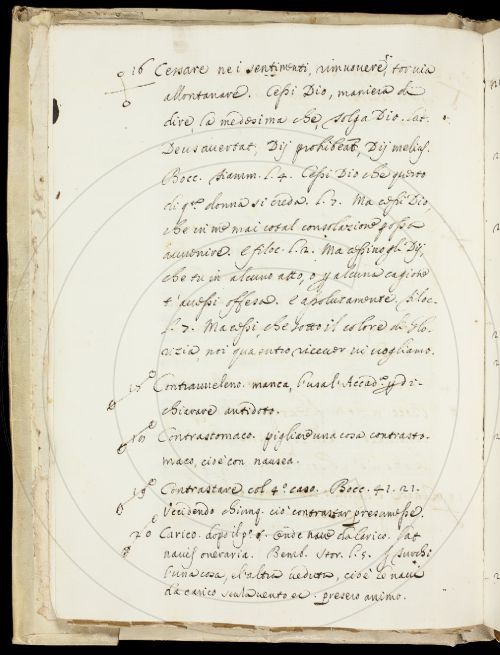 16 Cessare nei sentimenti, rimuovere, tor via
allontanare. Cessi Dio, maniera di
dire, la medesima che, tolga Dio. lat.
Deus avertat, Dij prohibeat, Dij melius.
Bocc. fiamm. l. 4. Cessi Dio che questo
di q.ta donna si creda. l. 7. Ma cessi Dio
che in me mai cotal consolazione possa
avvenire. e filoc. l. 2. Ma cessino gli Dij,
che tu in alcuno atto, o p alcuna cagione
t'avessi offesa. e assolutamente filoc.
l. 7. Ma cessi, che sotto il colore di
noi qua entro ricever vi vogliamo.
17 Contravveleno. manca, l'usa l'Accad.a p di-
chiarare antidoto.
18 Contrastomaco. pigliare una cosa contrasto-
maco, cioè con nausea.
19 Contrastare col 4.o caso. Bocc. 41. 21.
Uccidendo chiunq. ciò contrastar presumesse.
20 Carico. onde nave da carico. lat
navis oneraria. Bemb. stor. l. 5.
l'una cosa, e l'altra veduta, cioè le navi
da carico presero animo.